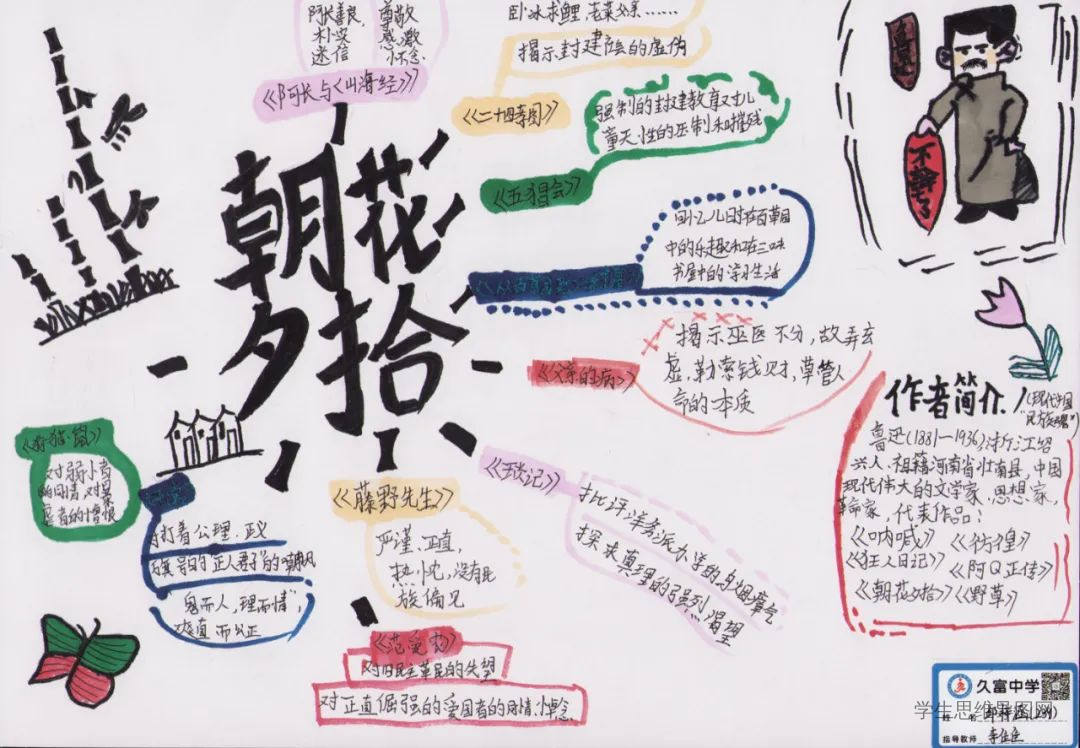 阿长善良,
朴实
迷信
尊敬
感激
怀念
《阿长与《山海经》》
卧冰求鲤,老莱父亲……
揭示封建社会的虚伪
《二十四孝图》
强制的封建教育对儿
童天性的压制和摧残
《五猖会》
回忆儿时在百草园
中的乐趣和在三味
书屋中的学习生活
朝花
夕拾
揭示巫医不分,故弄玄
虚,勒索钱财,草管人
命的本质
《父亲的病》
不干了
作者简介
(现代中国
"民族魂")
鲁迅(1881—1936),浙江绍
兴人,祖籍河南省
中国
现代伟大的文学家,思想家,
革命家,代表作品:
《呐喊》《彷徨》
《狂人日记》《阿Q正传》
《朝花夕拾》《野草》
《狗·猫·鼠》
对弱小者
的同情,对暴
虐者的憎恨
打着公理、正义
旗号的"正人君子"的嘲讽
"鬼而人,理而情",
爽直而公正
《藤野先生》
严谨、正直,
热忱,没有民
族偏见
《琐记》
批评洋务派办学的乌烟瘴气
探求真理的强烈渴望
《范爱农》
对旧民主革命的失望
对正直倔强的爱国者的同情、悼念
久富中学
学生思维导图网
姓名
指导教师